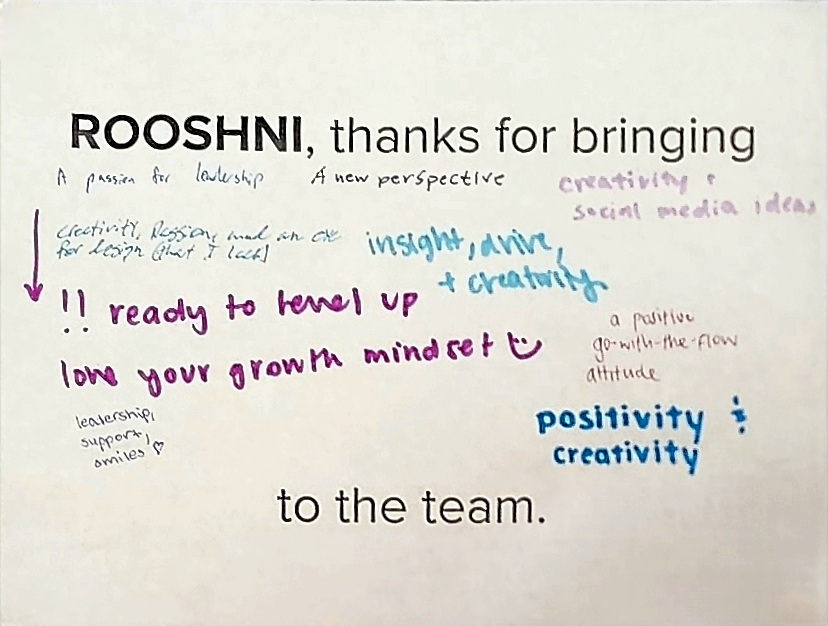 ROOSHNI, thanks for bringing
A passion for leadership
A new perspective
creativity &
social media ideas
creativity, Passion, and an eye
for design (that I lack)
insight, drive,
+ creativity
!! ready to level up
love your growth mindset
a positive
go-with-the-flow
attitude
leadership,
support,
smiles ♡
positivity &
creativity
to the team.